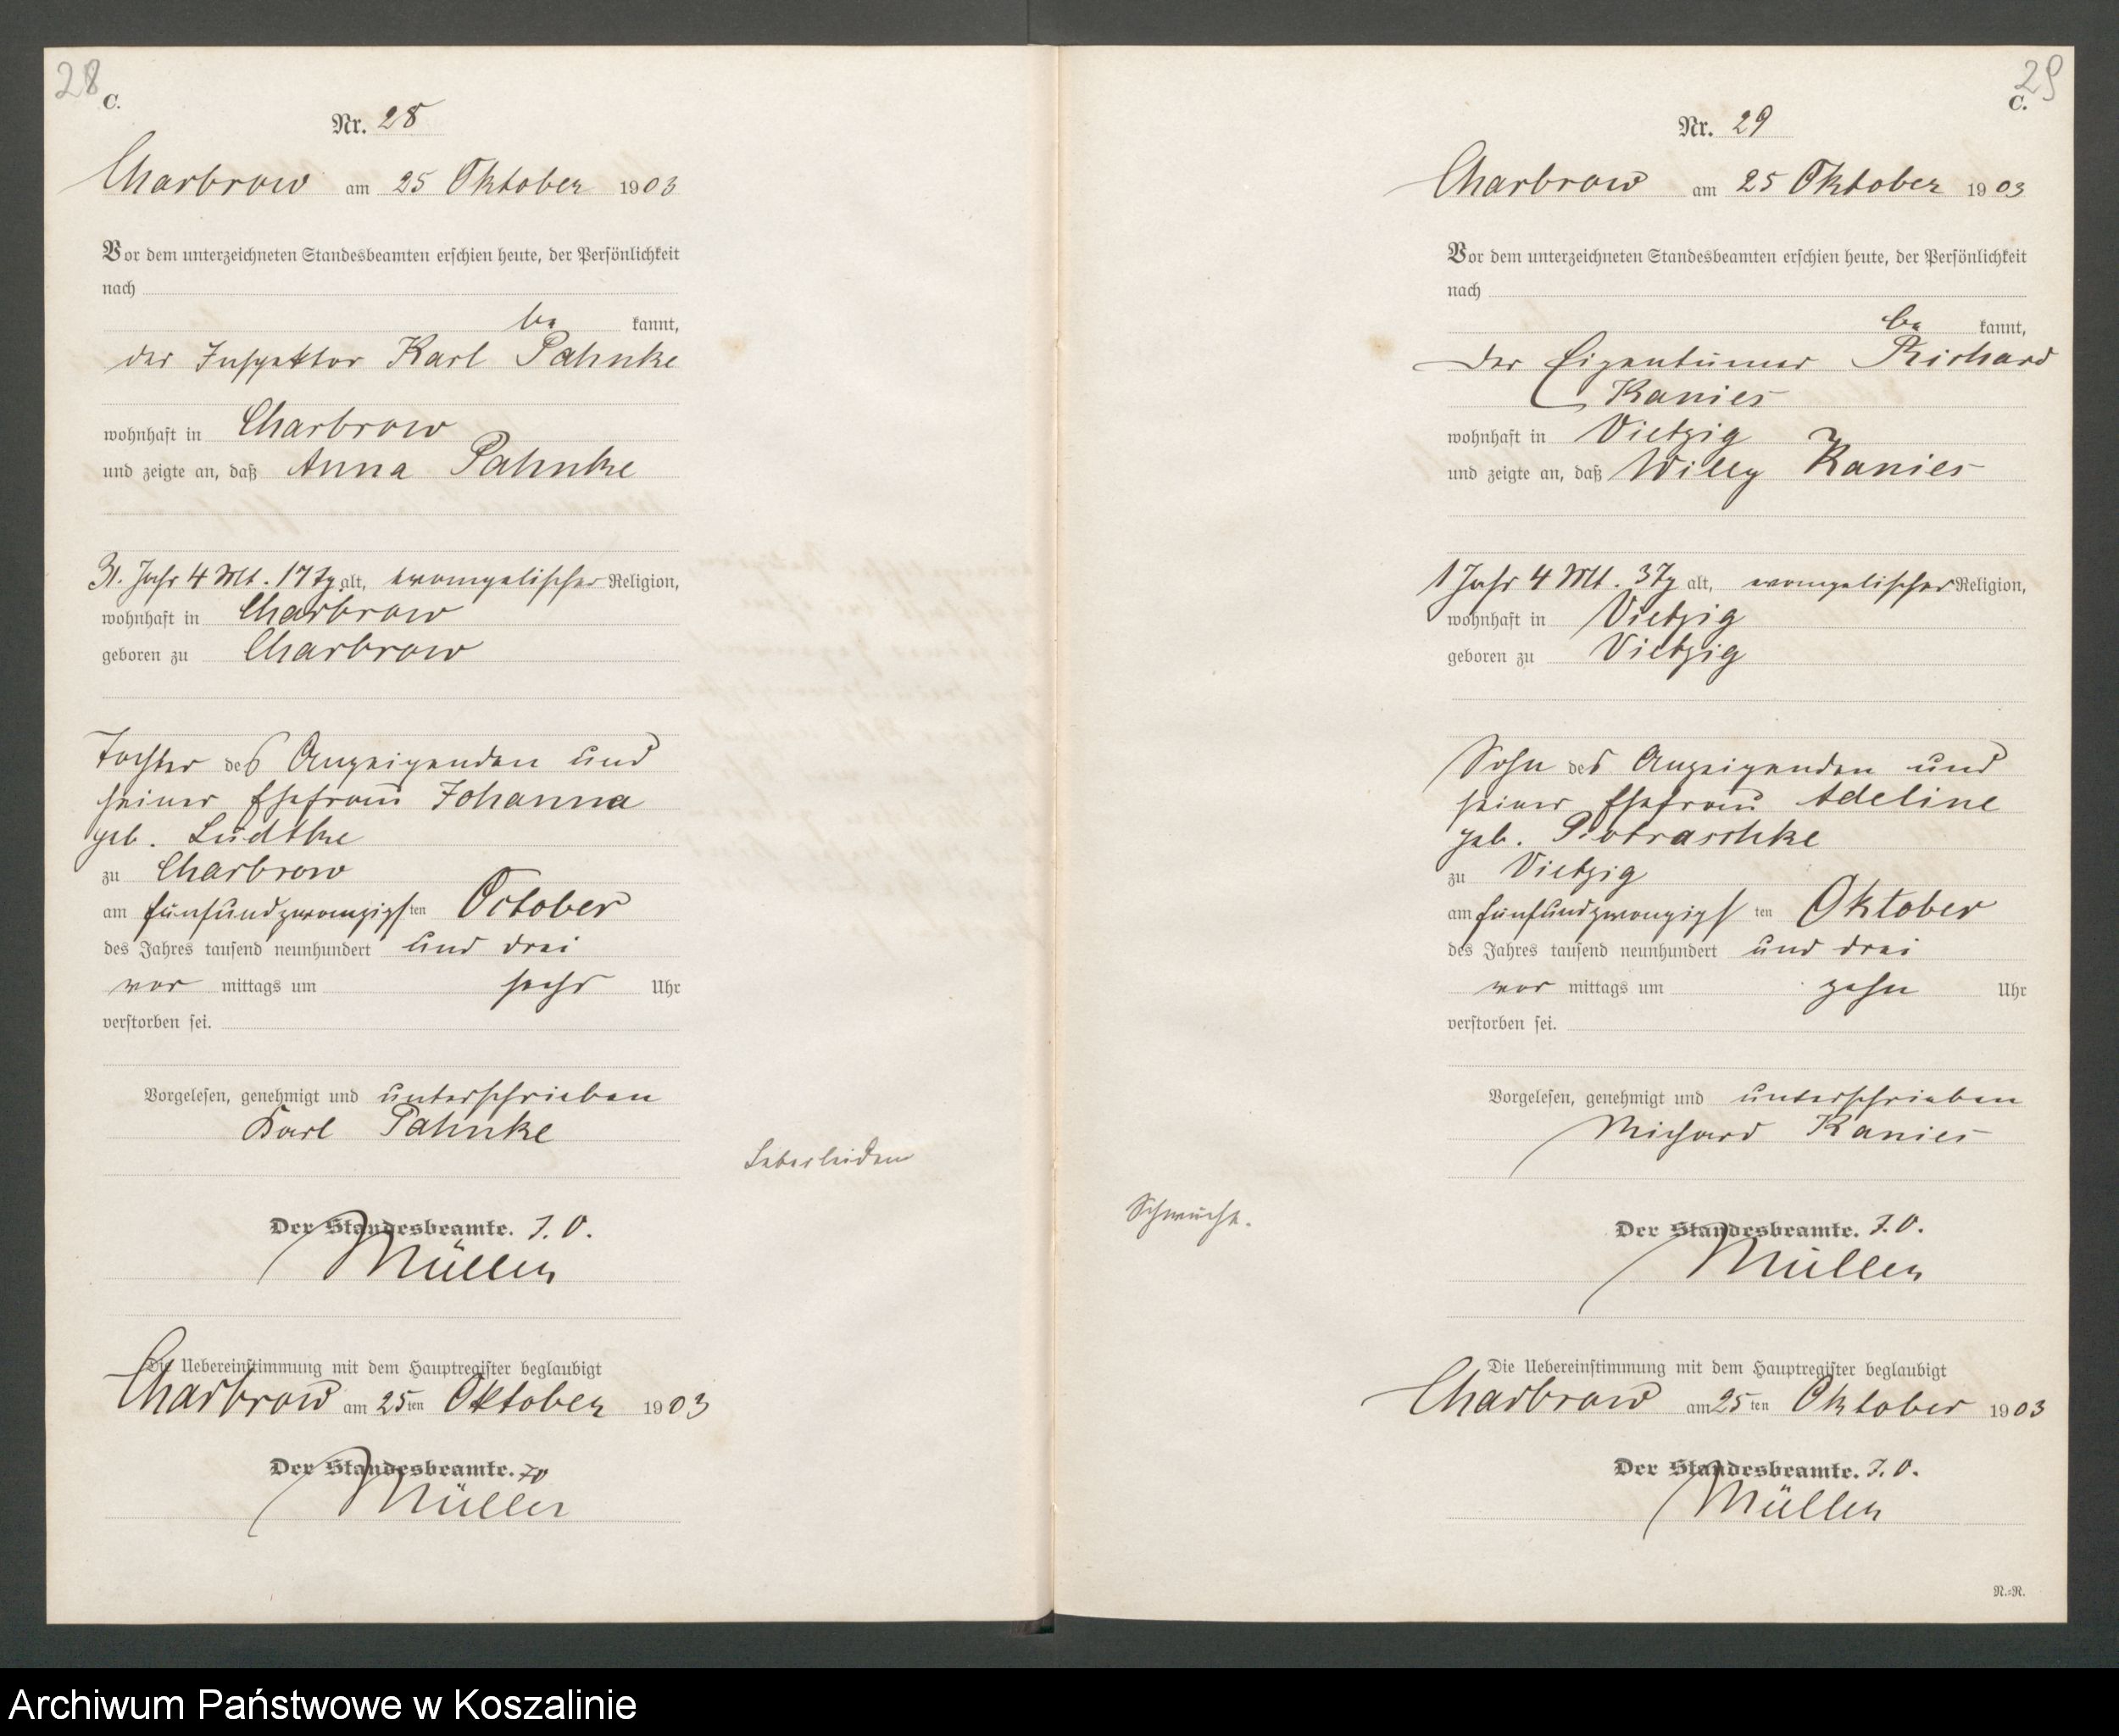 28
C.
Nr. 28
Charbrow am 25 Oktober 1903
Vor dem unterzeichneten Standesbeamten erschien heute, der Persönlichkeit
nach
be kannt,
der Inspektor Karl Pahnke
wohnhaft in Charbrow
und zeigte an, daß Anna Pahnke
31. Jahr 4 Mt. 17 Tg alt, evangelischer Religion,
wohnhaft in Charbrow
geboren zu Charbrow
Tochter des Anzeigenden und
seiner Ehefrau Johanna
geb. Lüdtke
zu Charbrow
am fünfundzwanzigsten October
des Jahres tausend neunhundert und drei
vor mittags um sechs Uhr
verstorben sei.
Vorgelesen, genehmigt und unterschrieben
Karl Pahnke
Leberleiden
Der Standesbeamte. J. V.
Müller
Die Uebereinstimmung mit dem Hauptregister beglaubigt
Charbrow am 25ten Oktober 1903
Der Standesbeamte. JV
Müller
29
C.
Nr. 29
Charbrow am 25 Oktober 1903
Vor dem unterzeichneten Standesbeamten erschien heute, der Persönlichkeit
nach
be kannt,
der Eigentümer Richard
Kanies
wohnhaft in Vietzig
und zeigte an, daß Willy Kanies
1 Jahr 4 Mt. 3 Tg alt, evangelischer Religion,
wohnhaft in Vietzig
geboren zu Vietzig
Sohn des Anzeigenden und
seiner Ehefrau Adeline
geb. Piotraschke
zu Vietzig
am fünfundzwanzigsten Oktober
des Jahres tausend neunhundert und drei
vor mittags um zehn Uhr
verstorben sei.
Vorgelesen, genehmigt und unterschrieben
Richard Kanies
Schwäche.
Der Standesbeamte. J. V.
Müller
Die Uebereinstimmung mit dem Hauptregister beglaubigt
Charbrow am 25ten Oktober 1903
Der Standesbeamte. J. V.
Müller
N.=R.
Archiwum Państwowe w Koszalinie